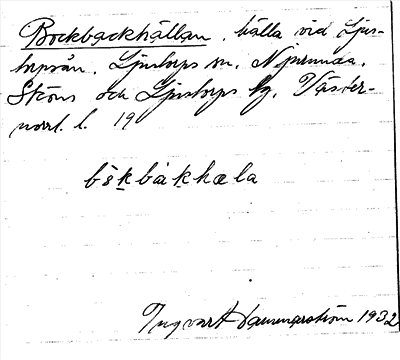 Bockbackhällan, hälla vid Ljus-
torpsån, Ljustorps sn, Njurunda,
Sköns och Ljustorps tg, Väster-
norrl. l. 19
bòkbàkhæla
Ingvart Hammarström 1932